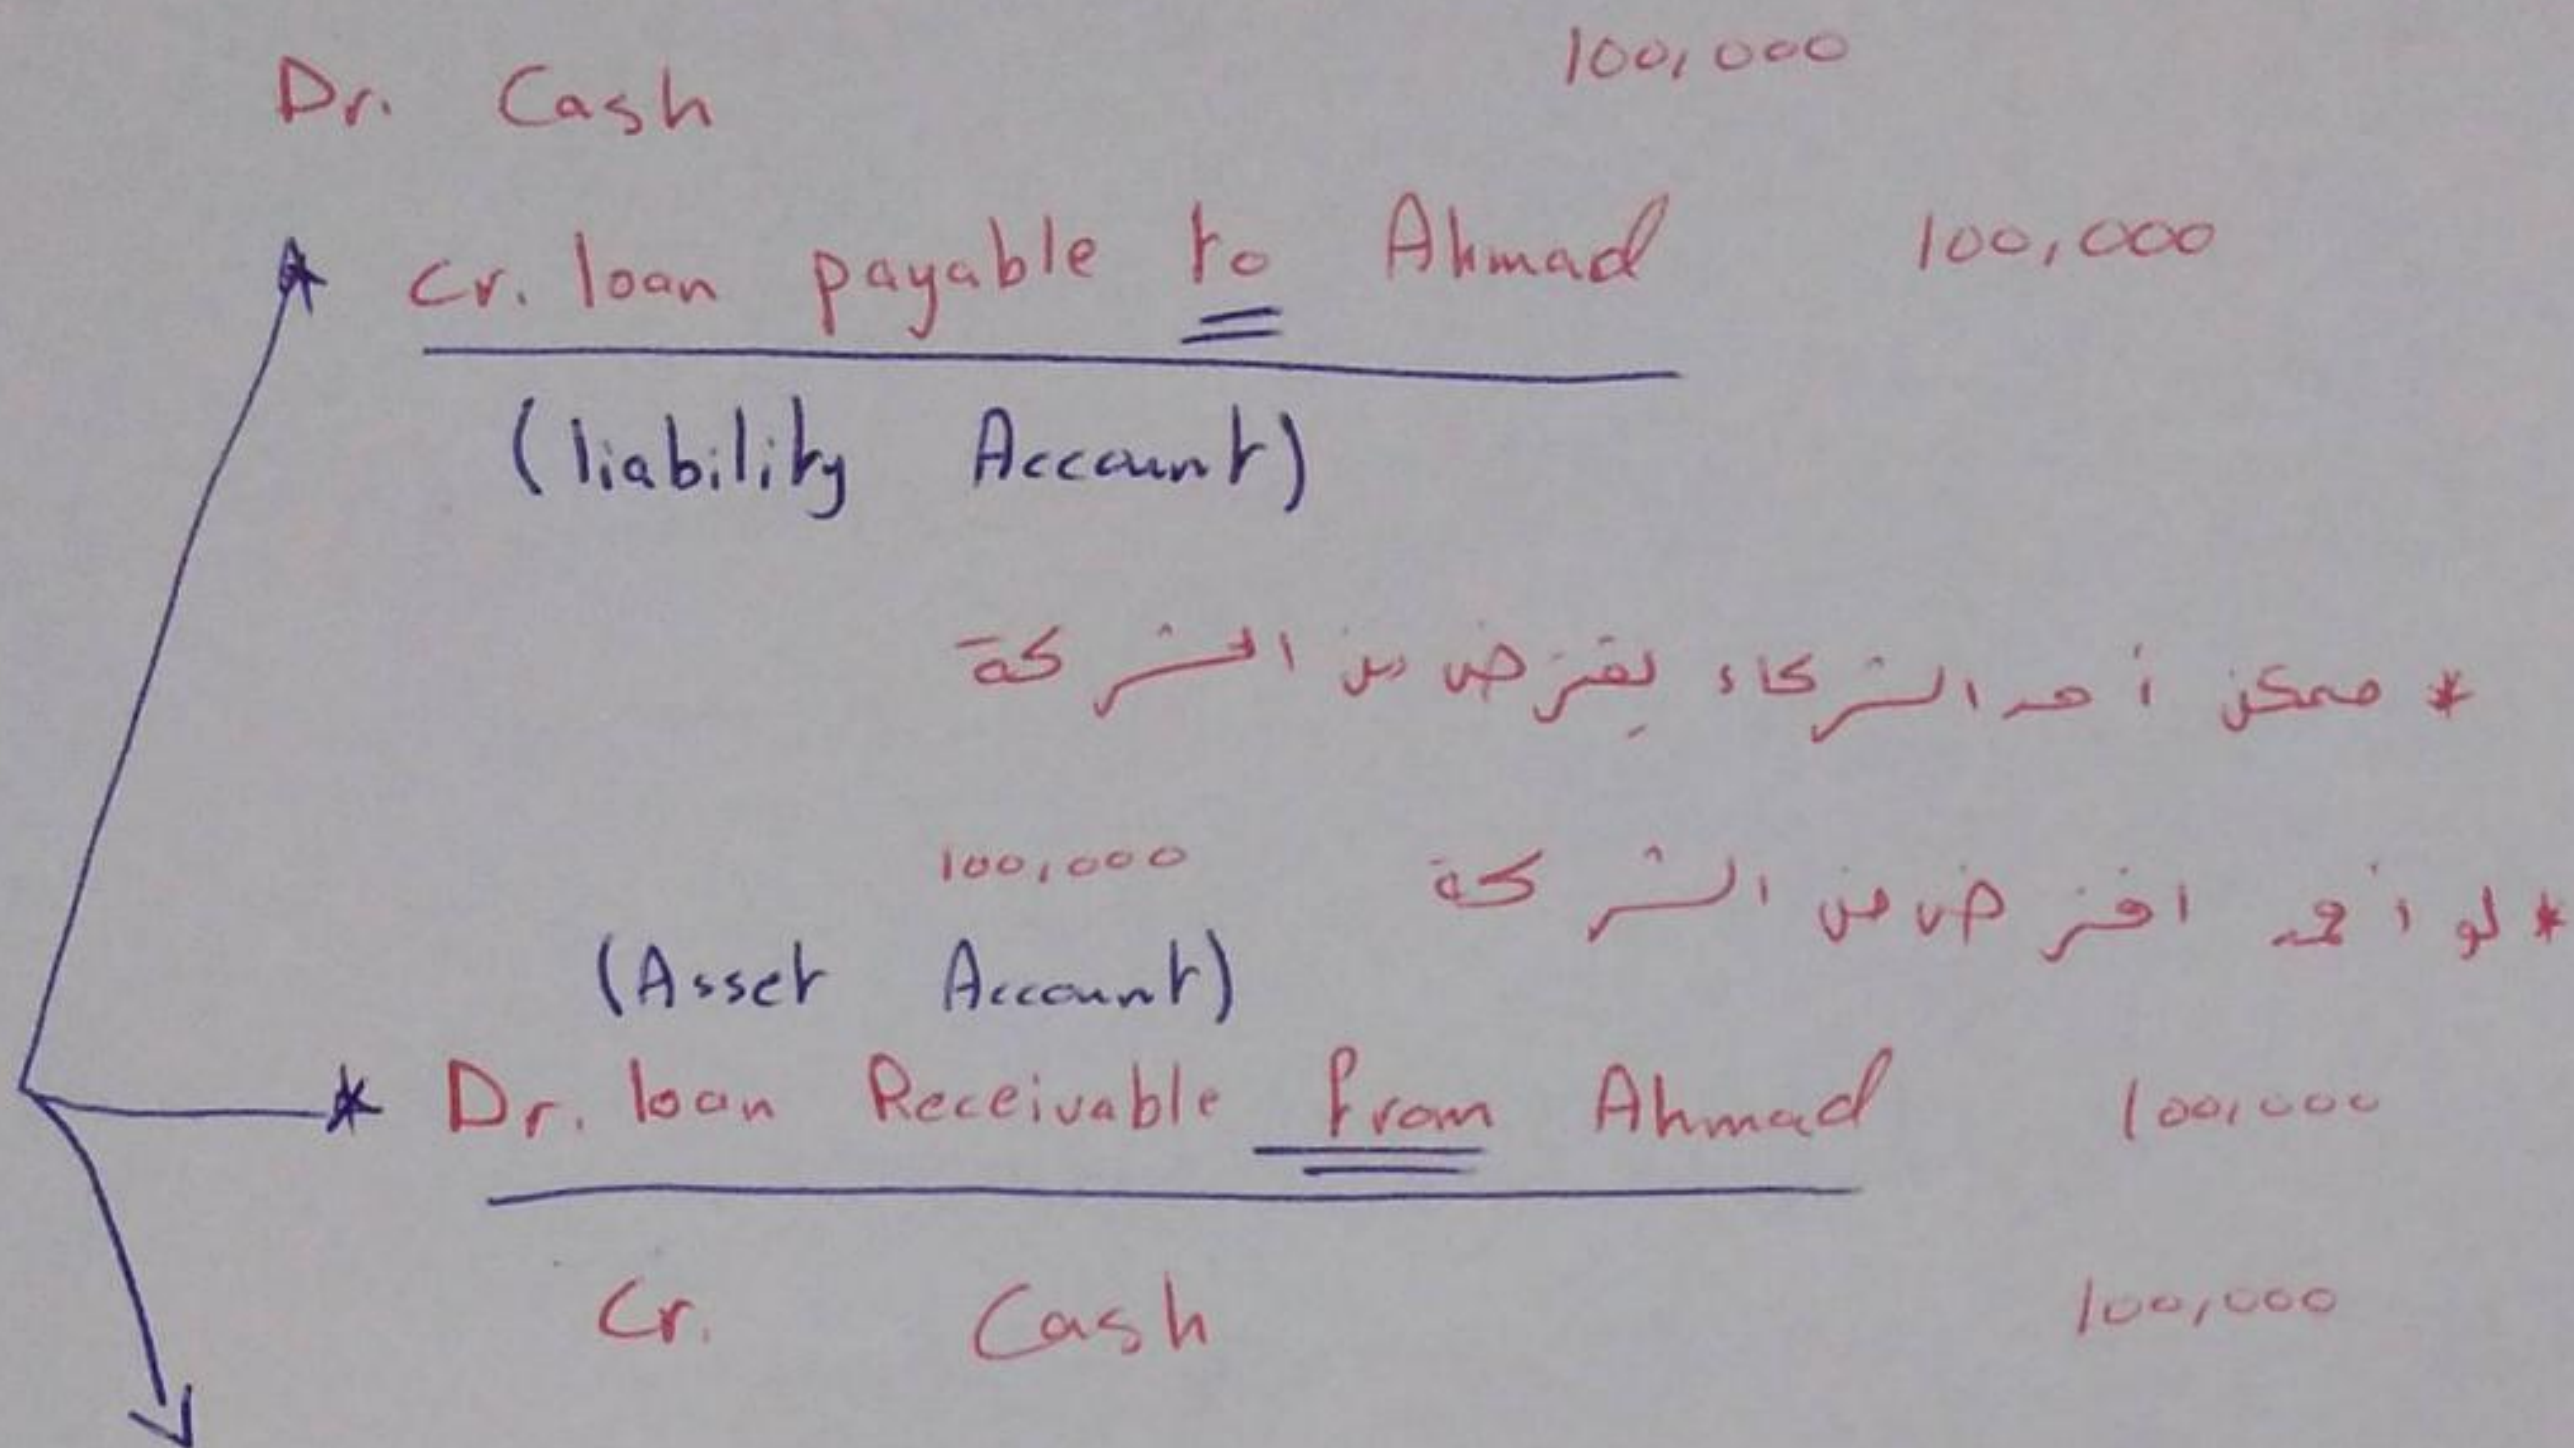 Dr. Cash 100,000
* Cr. loan payable to Ahmad 100,000
(liability Account)
* ممكن أحد الشركاء يقترض من الشركة
* لو أحمد اقترض من الشركة 100,000
(Asset Account)
* Dr. loan Receivable from Ahmad 100,000
Cr. Cash 100,000